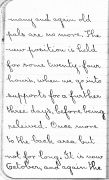 many and again old
pals are no more. The
new position is held
for some twenty-four
hours, when we go into
supports for a further
three days, before being
relieved. Once more
to the back area but
not for long. It is now
October, and again the